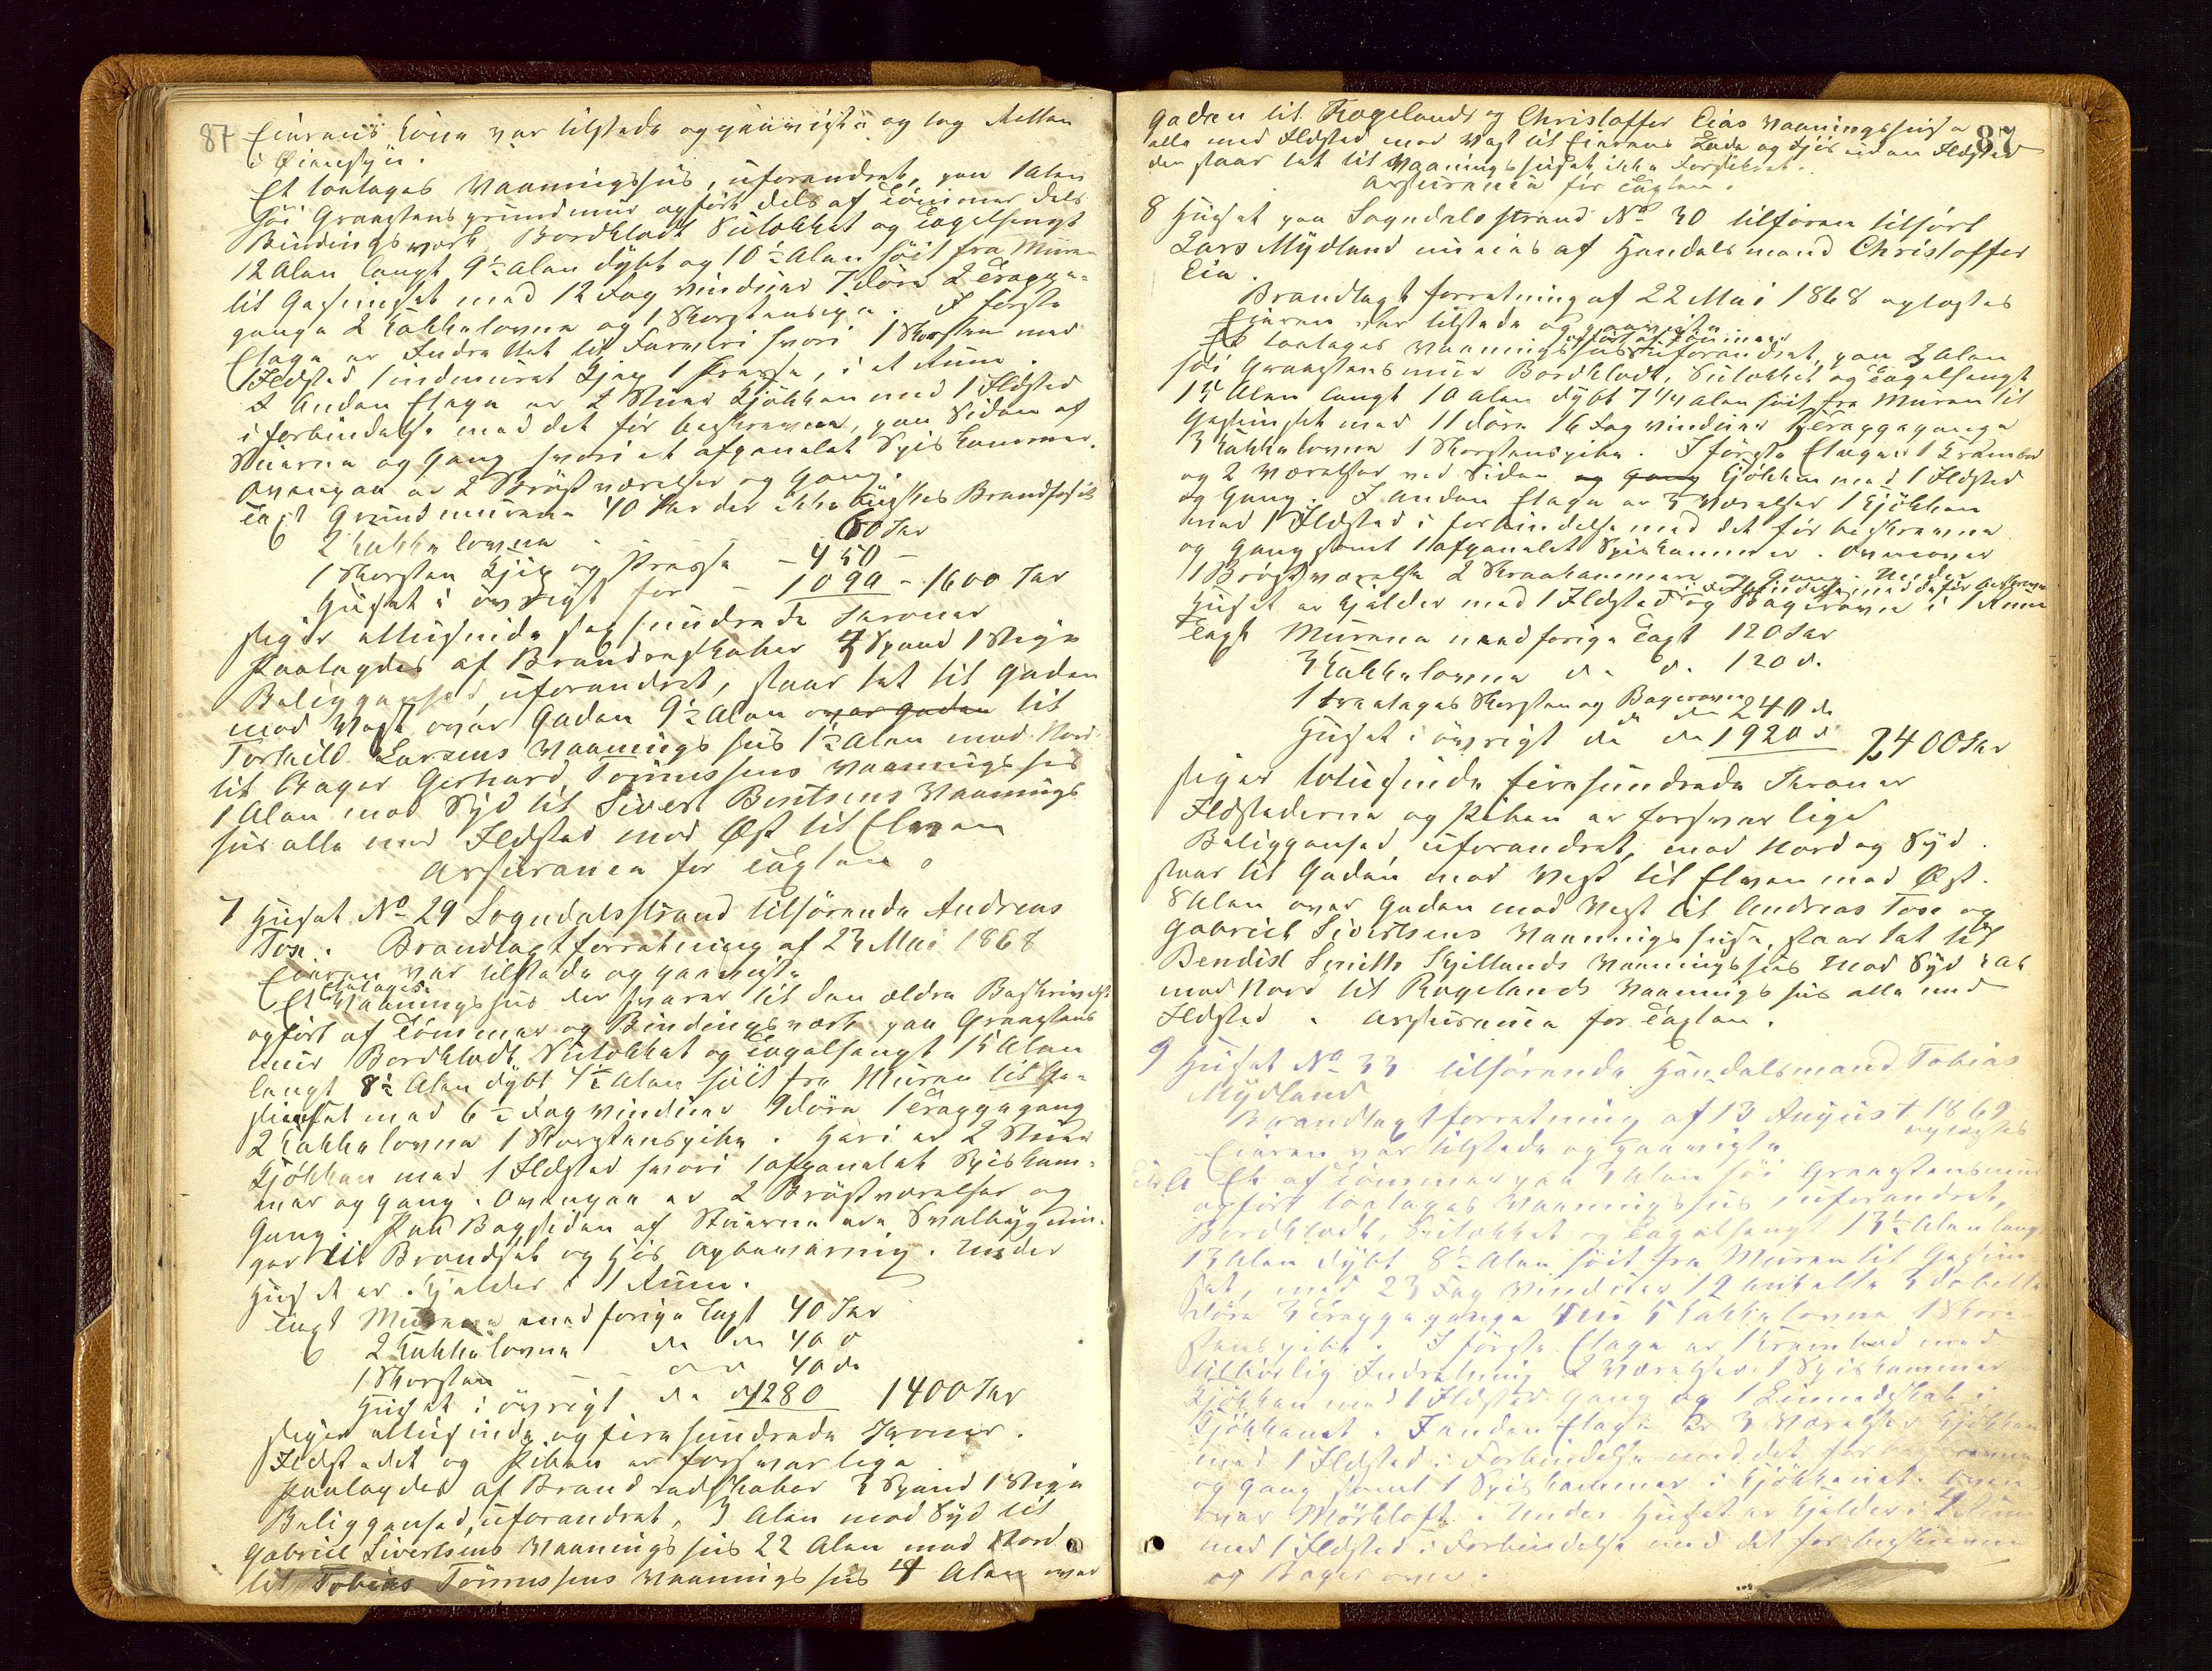 87 Eierens Kone var tilstede og paaviste og tog Retten
i Øiensyn.
Et toetages Vaaningshus, uforandret, paa 1 Alen
høi Graastensgrundmuur opført dels af Tømmer dels
Bindingsværk Bordklædt Sutækket og Tagelhængt
12 Alen langt 9½ Alen dybt og 10½ Alen høit fra Muren
til Gesimset med 12 Fag Vinduer 7 Døre 2 Trappe-
gange 2 Kakkelovne og 1 Skorstenspibe. I første
Etage er Indrettet til Farveri hvori 1 Skorsten med
1 Ildsted 1 indmuret Kjep 1 Presse, i et Rum.
I Anden Etage er 2 Stuer Kjøkken med 1 Ildsted
i forbindelse med det før beskrevne, paa Siden af
Stuerne og Gang hvori et afpanelet Spiskammer.
Ovenpaa er 2 Brøstværelser og Gang.
Taxt Grundmurene 40 Kr der ikke Brandforsik
2 Kakkelovne - 60 Kr
1 Skorsten Kjep og Presse - 450 -
Huset i øvrigt for - 1090 - 1600 Kr
siger ettusinde sexhundrede Kroner
Paalagdes af Brandredskaber 3 Spand 1 Stige
Beliggenhed uforandret, staar tæt til Gaden
mod Vest over Gaden 9½ Alen over gaden til
Torkild Larsens Vaaningshus 1½ Alen mod Nord
til Bager Gerhard Tønnessens Vaaningshus
1 Alen mod Syd til Sivert Bentsens Vaanings
hus alle med Ildsted mod Øst til Elven
Assurance for Taxten.
7 Huset No 29 Sogndalsstrand tilhørende Andreas
Tose. Brandtaxtforretning af 23 Mai 1868
Eieren var tilstede og paaviste
Et etages Vaaningshus der svarer til den ældre Beskrivelse
opført af Tømmer og Bindingsværk paa Graastens
muur Bordklædt Sutækket og Tagelhængt 15 Alen
langt 8½ Alen dybt 4½ Alen høit fra Muren til Ge-
simset med 6½ Fag Vinduer 9 Døre 1 Trappegang
2 Kakkelovne 1 Skorstenspibe. Heri er 2 Stuer
Kjøkken med 1 Ildsted hvori 1 afpanelet Spiskam-
mer og Gang. Ovenpaa er 2 Brøstværelser og
Gang. Paa Bagsiden af Stuerne ere Svalbygnin-
ger til Brændsel og Høs Opbevaring. Under
Huset er Kjelder i 1 Rum.
Taxt Murene med forige Taxt 40 Kr
2 Kakkelovne do do 40 d
1 Skorsten - - do d 40 do
Huset i øvrigt do d 1280 1400 Kr
siger ettusinde og firehundrede Kroner.
Ildstedet og Piben er forsvarlige
Paalagdes af Brandredskaber 3 Spand 1 Stige
Beliggenhed uforandret, 3 Alen mod Syd til
Gabriel Sivertsens Vaaningshus 22 Alen mod Nord
til Tobias Tønnessens Vaaningshus 4 Alen over
87
Gaden til Rogelands og Christoffer Eias Vaaningshuse
alle med Ildsted mod Vest til Eierens Lade og Fjøs uden Ildsted
der staar tæt til Vaaningshuset ikke Forsikret.
Assurance for Taxten.
8 Huset paa Sogndalsstrand No 30 tilforen tilhørt
Lars Mydland nu eies af Handelsmand Christoffer
Eia.
Brandtaxtforretning af 22 Mai 1868 oplæstes
Eieren var tilstede og paaviste.
opført af Tømmer
Et toetages Vaaningshus uforandret, paa 2 Alen
høi Graastensmuur Bordklædt, Sutækket og Tagelhængt
15 Alen langt 10 Alen dybt 7¼ Alen høit fra Muren til
Gesimset med 11 Døre 16 Fag Vinduer Trappegange
3 Kakkelovne 1 Skorstenspibe. I første Etage er 1 Krambod
og 2 Værelser ved Siden og Gang Kjøkken med 1 Ildsted
og Gang. I Anden Etage er 3 Værelser 1 Kjøkken
med 1 Ildsted i forbindelse med det før beskrevne
og Gang samt 1 afpanelet Spiskammer. Ovenover
1 Brøstværelse 2 Skraakammere og Gang. Under
i Forbindelse med det før beskrevne
Huset er Kjelder med 1 Ildsted og Bagerovn i 1 Rum
Taxt Murene med forige Taxt 120 Kr
3 Kakkelovne do d. 120 d.
1 treetages Skorsten og Bagerovn do 240 do
Huset i øvrigt do do 1920 d 2400 Kr
siger totusinde firehundrede Kroner
Ildstederne og Piben er forsvarlige
Beliggenhed uforandret, mod Nord og Syd.
staar til Gaden mod Vest til Elven mod Øst.
8 Alen over Gaden mod Vest til Andreas Tose og
Gabriel Sivertsens Vaaningshuse, staar tæt til
Bendix Smith Skjellands Vaaningshus mod Syd
mod Nord til Rogelands Vaaningshus alle med
Ildsted. Assurance for Taxten.
9 Huset No 33 tilhørende Handelsmand Tobias
Mydland
Brandtaxtforretning af 13 August 1869
oplæstes
Eieren var tilstede og paaviste
A Et af Tømmer paa 3 Alen høi Graastensmur
opført toetages Vaaningshus, uforandret,
Bordklædt, Sutækket og Tagelhængt 13½ Alen langt
13 Alen dybt 8½ Alen høit fra Muren til Gesim-
set, med 23 Fag Vinduer 12 enkelte 3 dobbelte
Døre 3 Trappegange 5 Kakkelovne 1 Skor-
stenspibe. I første Etage er 1 Krambod med
tilhørlig Indretning 2 Værelser 1 Spiskammer
Kjøkken med 1 Ildsted Gang og 1 Linnedskab i
Kjøkkenet. I anden Etage er 3 Værelser Kjøkken
med 1 Ildsted i Forbindelse med det før beskrevne
og Gang samt 1 Spiskammer i Kjøkkenet. Oven
over Mørkloft. Under Huset er Kjelder i 2 Rum
med 1 Ildsted i Forbindelse med det før beskrevne
og Bagerovn.